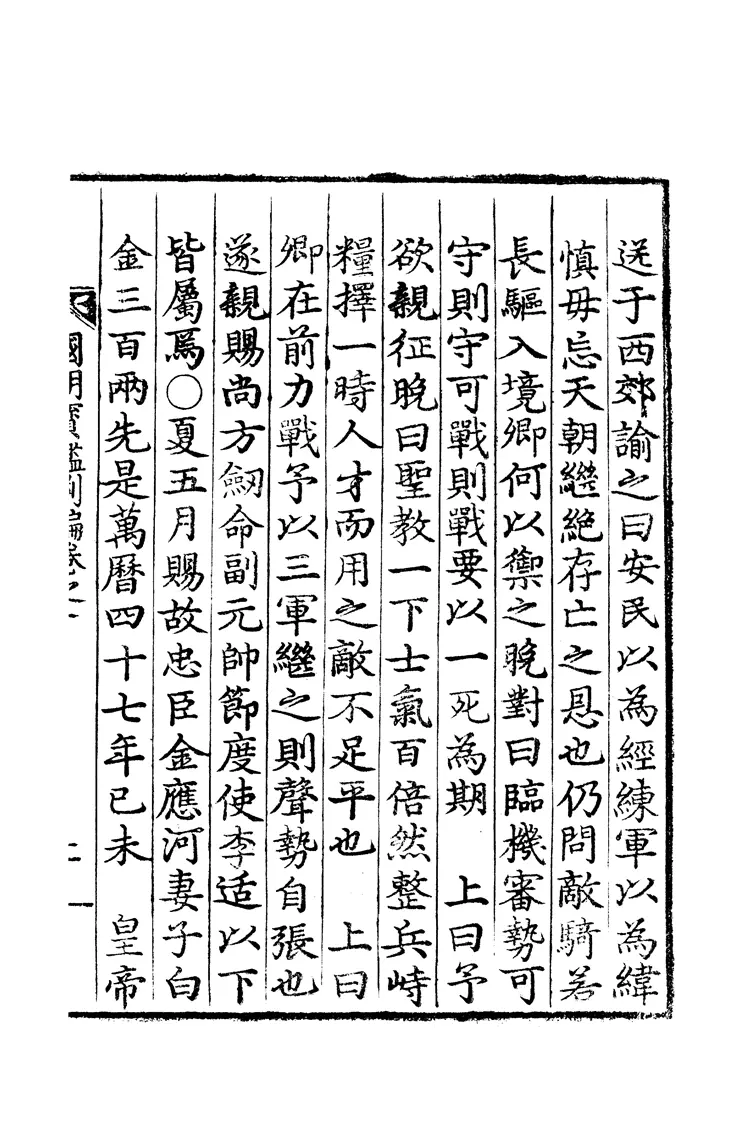 送于西郊諭之曰安民以為經練軍以為緯
慎毋忘天朝繼絶存亡之恩也仍問敵騎若
長驅入境卿何以禦之晚對曰臨機審勢可
守則守可戰則戰要以一死為期　上曰予
欲親征晚曰聖教一下士氣百倍然整兵峙
糧擇一時人才而用之敵不足平也　上曰
卿在前力戰予以三軍繼之則聲勢自張也
遂親賜尚方劒命副元帥節度使李适以下
皆屬焉○夏五月賜故忠臣金應河妻子白
金三百兩先是萬曆四十七年已未　皇帝
國朝寶鑑別編卷之一
二一